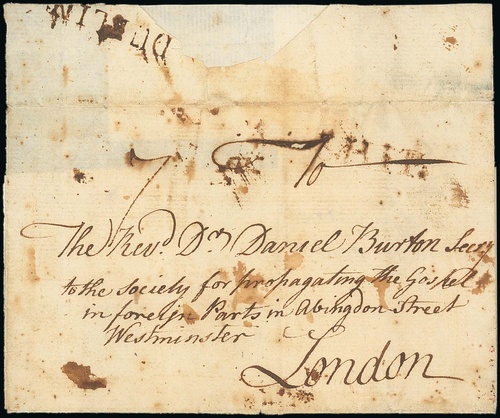 DUBLIN
7 To
The Revd. Dr. Daniel Burton Secry
to the Society for propagating the Gospel
in foreign Parts in Abingdon Street
Westminster
London